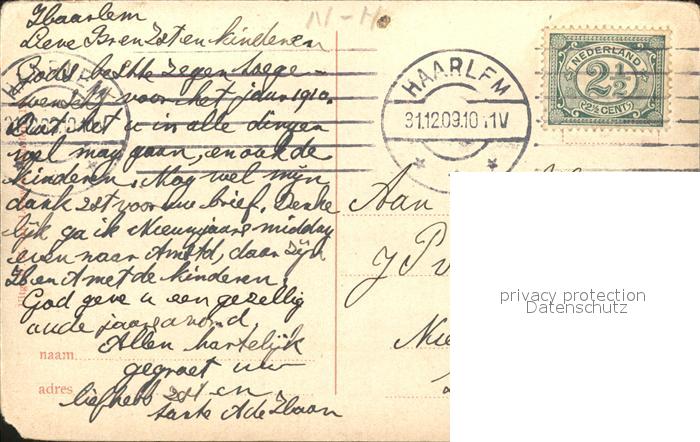 Haarlem
N-H.
Lieve Br en Zst en kinderen
Gods beste zegen toege-
wenscht voor het jaar 1910.
Dat het u in alle dingen
wel mag gaan, en ook de
kinderen. Nog wel mijn
dank zst voor uw brief. Denke
lijk ga ik Nieuwjaars middag
even naar Amstd, daar zijn
H en A met de kinderen.
God geve u een gezellig
oude jaarsavond,
Allen hartelijk
gegroet uw
liefhebb zst en
tante A de Haan
naam
adres
HAARLEM
31.12.09.10-11V
NEDERLAND
2½
(2½ CENT)
Aan
J P
Nie
privacy protection
Datenschutz